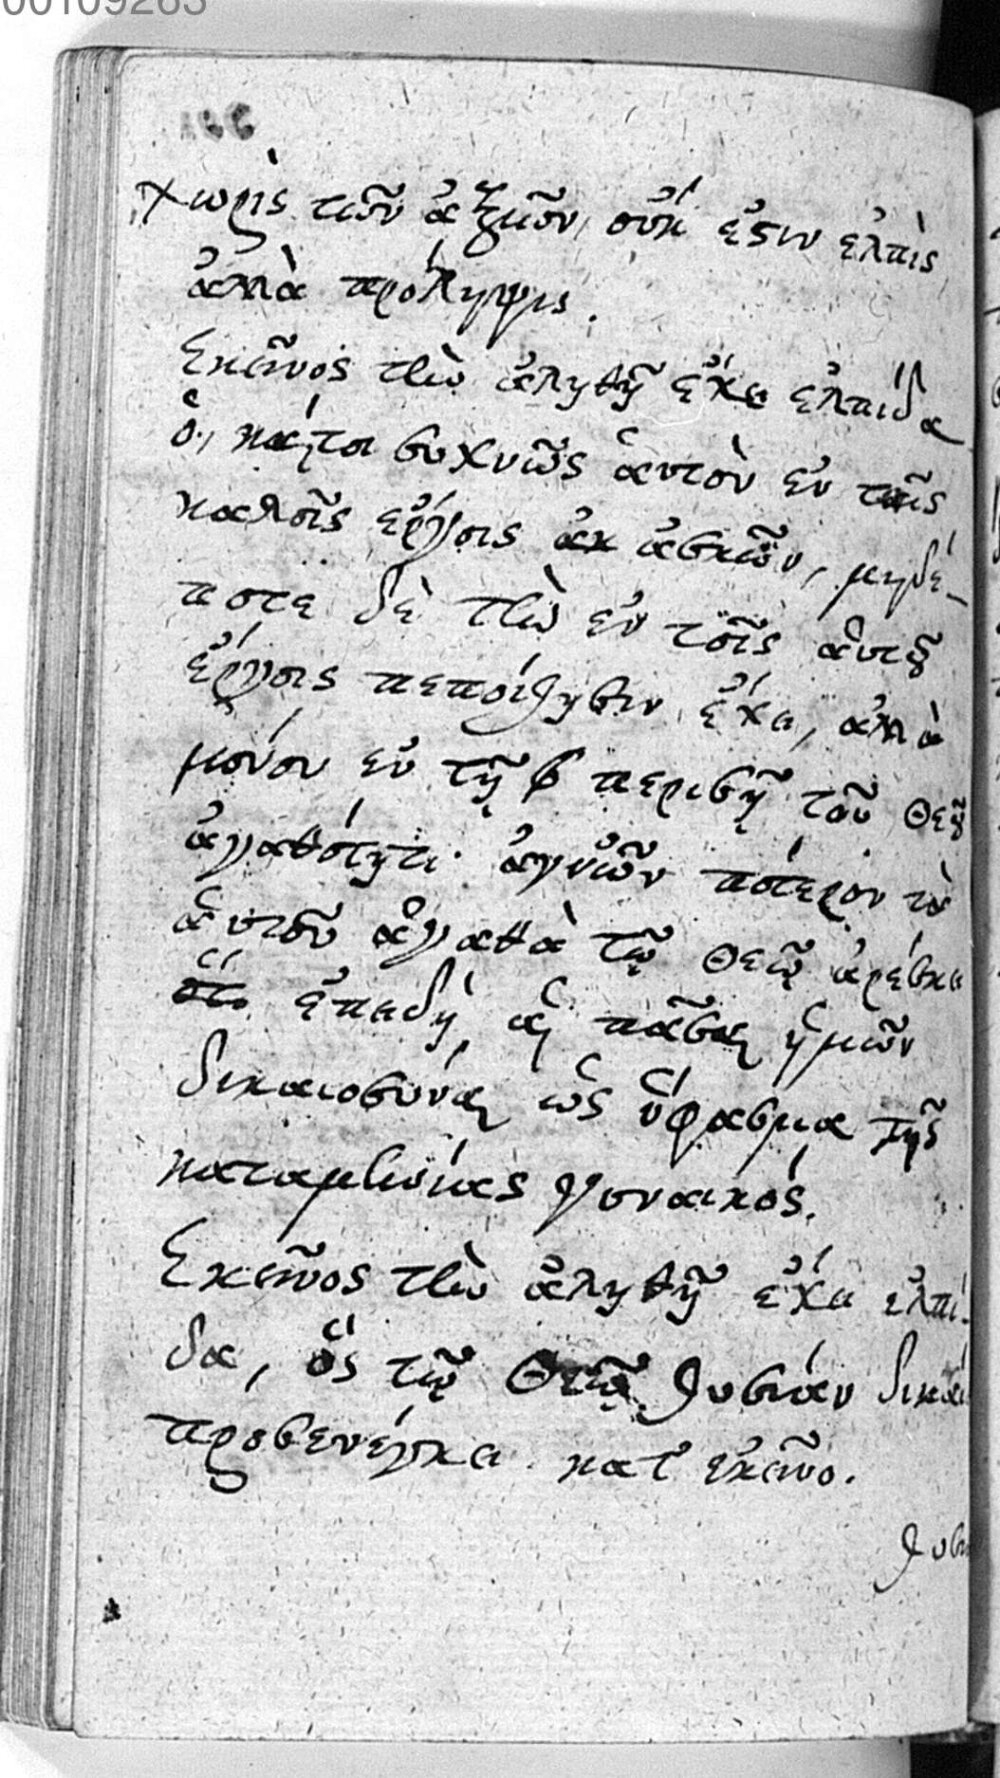 00109283
166
χωρὶς τῶν ἀξιῶν, οὔκ ἔστιν ἐλπὶς
ἀλλὰ πρόληψις.
Ἐκεῖνος τὴν ἀληθῆ ἔχει ἐλπίδα
ὁ, καίτοι συχνῶς ἁυτὸν ἐν τοῖς
καλοῖς ἔργοις ἀσκῶν, μηδέ-
ποτε δὲ τὴν ἐν τοῖς ἁυτοῦ
ἔργοις πεποίθησιν ἔχει, ἀλλὰ
μόνον ἐν τῇ περισῇ τοῦ Θεοῦ
ἀγαθότητι· ἀγνοῶν πότερον τὰ
ἁυτοῦ ἀγαθὰ τῷ Θεῷ ἀρέσκει
ὅτι ἐπειδὴ, αἱ πᾶσαι ἡμῶν
δικαιοσύναι ὡς ὕφασμα τῆς
καταμηνίας γυναικός.
Ἐκεῖνος τὴν ἀληθῆ ἔχει ἐλπί-
δα, ὅς τῷ Θεῷ θυσίαν δικαι
προσενέγκει κατ' ἐκεῖνο.
θυσι